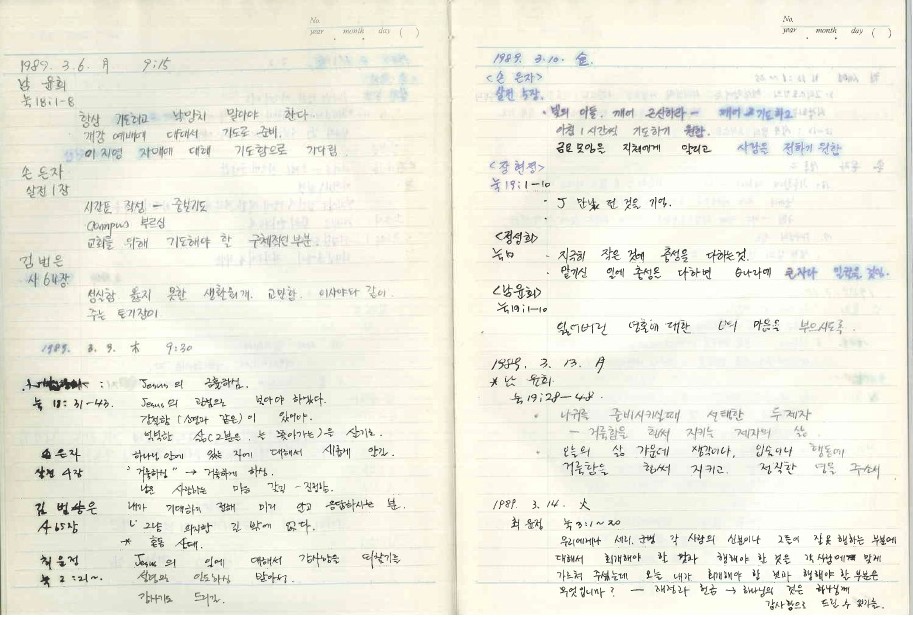 No.
year . month . day ( )
1989. 3. 6. 月 9:15
남 윤희
눅 18:1-8
항상 기도하고 낙망치 말아야 한다.
개강 예배에 대해서 기도로 준비.
이지영 자매에 대해 기도함으로 기다림.
손 은자
살전 1장
시간표 작성 - 중보기도
Campus 부르심
교회를 위해 기도해야 할 구체적인 부분
김 범은
사 64장
성실함 옳지 못한 생활위계. 교만함. 이사야와 같이.
주는 토기장이
1989. 3. 9. 木 9:30
: Jesus의 긍휼하심.
눅 18:31-43. Jesus의 관점으로 보아야 하겠다.
간절함 ( 같은)이 있어야.
삶 는 쫓아가는)을 살기로.
손은자 하나님 안에 있는 자에 대해서 새롭게 안간.
살전 4장 "거룩하심" → 거룩하게 하심.
남을 사랑하는 마음 갖기 - 진정한.
김 범은 내가 기대하기 전에 미리 알고 응답하시는 분.
사 65장 의지할 길 밖에 없다.
* 호등 상대.
최윤정 Jesus의 일에 대해서 감사함을
눅 2:21~ 성령의 인도하심 받아서.
감사기도 드리라.
No.
year . month . day ( )
1989. 3. 10. 金.
<손 은자>
살전 5장.
· 빛의 아들. 깨어 근신하라 - 깨어 기도하고
아침 1시간씩 기도하기 원함.
금요모임을 지체에게 알리고 사랑을 전하기 원함
<장 현정>
눅 19:1-10
· J 만났던 것을 기억.
<정성희>
눅
· 지극히 작은 것에 충성을 다하는것.
· 맡기신 일에 충성을 다하면
<남윤희>
눅 19:1-10
잃어버린 영혼에 대한 마음을 부으시도록.
1989. 3. 13. 月
* 남 윤희
눅 19:28-48
· 나귀를 준비시키실때 선택한 두제자
- 거룩함을 힘써 지키는 제자의 삶
· 오늘의 삶 가운데 생각이나, 입술이나 행동에
거룩함을 힘써 지키고. 정직한 영을 주소서
1989. 3. 14. 火
최 윤정 눅 3:1~20
우리에게나 세리, 군병 각 사람의 신분이나 그들이 잘못 행하는 부분에
대해서 회개해야 할 것과 행해야 할 것은 각 사람에게 맞게
가르쳐 주셨는데 오늘 내가 회개해야 할 것과 행해야 할 부분은
무엇입니까? - 재정과 헌금 → 하나님의 것은 하나님께
감사함으로 드릴 수 있기를.